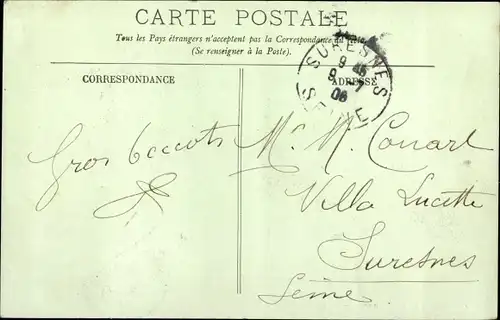 CARTE POSTALE
Tous les Pays étrangers n'acceptent pas la Correspondance au
(Se renseigner à la Poste).
CORRESPONDANCE
ADRESSE
SURESNES
9
9 -7
06
SEINE
Gros beccots
M. M. Conart
Villa Lucette
Suresnes
Seine